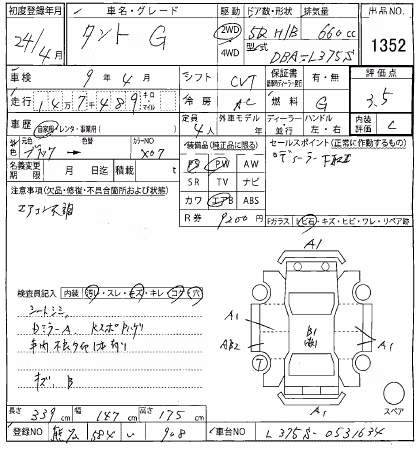 初度登録年月 車名・グレード 駆動 ドア数・形状 排気量 出品NO.
24/4月 タント G 2WD 4WD 5D H/B 660cc 1352
型式 DBA-L375S
車検 9年4月 シフト CVT 保証書 有・無 評価点
走行 14万7千489 キロ・マイル 冷房 AC 燃料 G 3.5
車歴 自家用・レンタ・事業用( ) 定員 4人 外車モデル年 ディーラー・並行 ハンドル 左・右 内装評価 C
外色 元色 色替 カラーNO X07
装備品(純正品に限る) セールスポイント(正常に作動するもの)
名義変更期限 月 日迄 積載 t
PS PW AW
SR TV ナビ
カワ エアB ABS
R券 9200円
注意事項(欠品・修復・不具合箇所および状態)
エアコン不調
Fガラス(ヒビ・石・キズ・ヒビ・ワレ・リペア跡)
検査員記入 内装 汚レ・スレ・キズ・キレ・コゲ・穴
シートシミ
キズ B
A1
A1
A1
AB2
A1
A1
B1
T
スペア
長さ 339cm 幅 147cm 高さ 175cm
登録NO 584 い 908 車台NO L375S-0531634